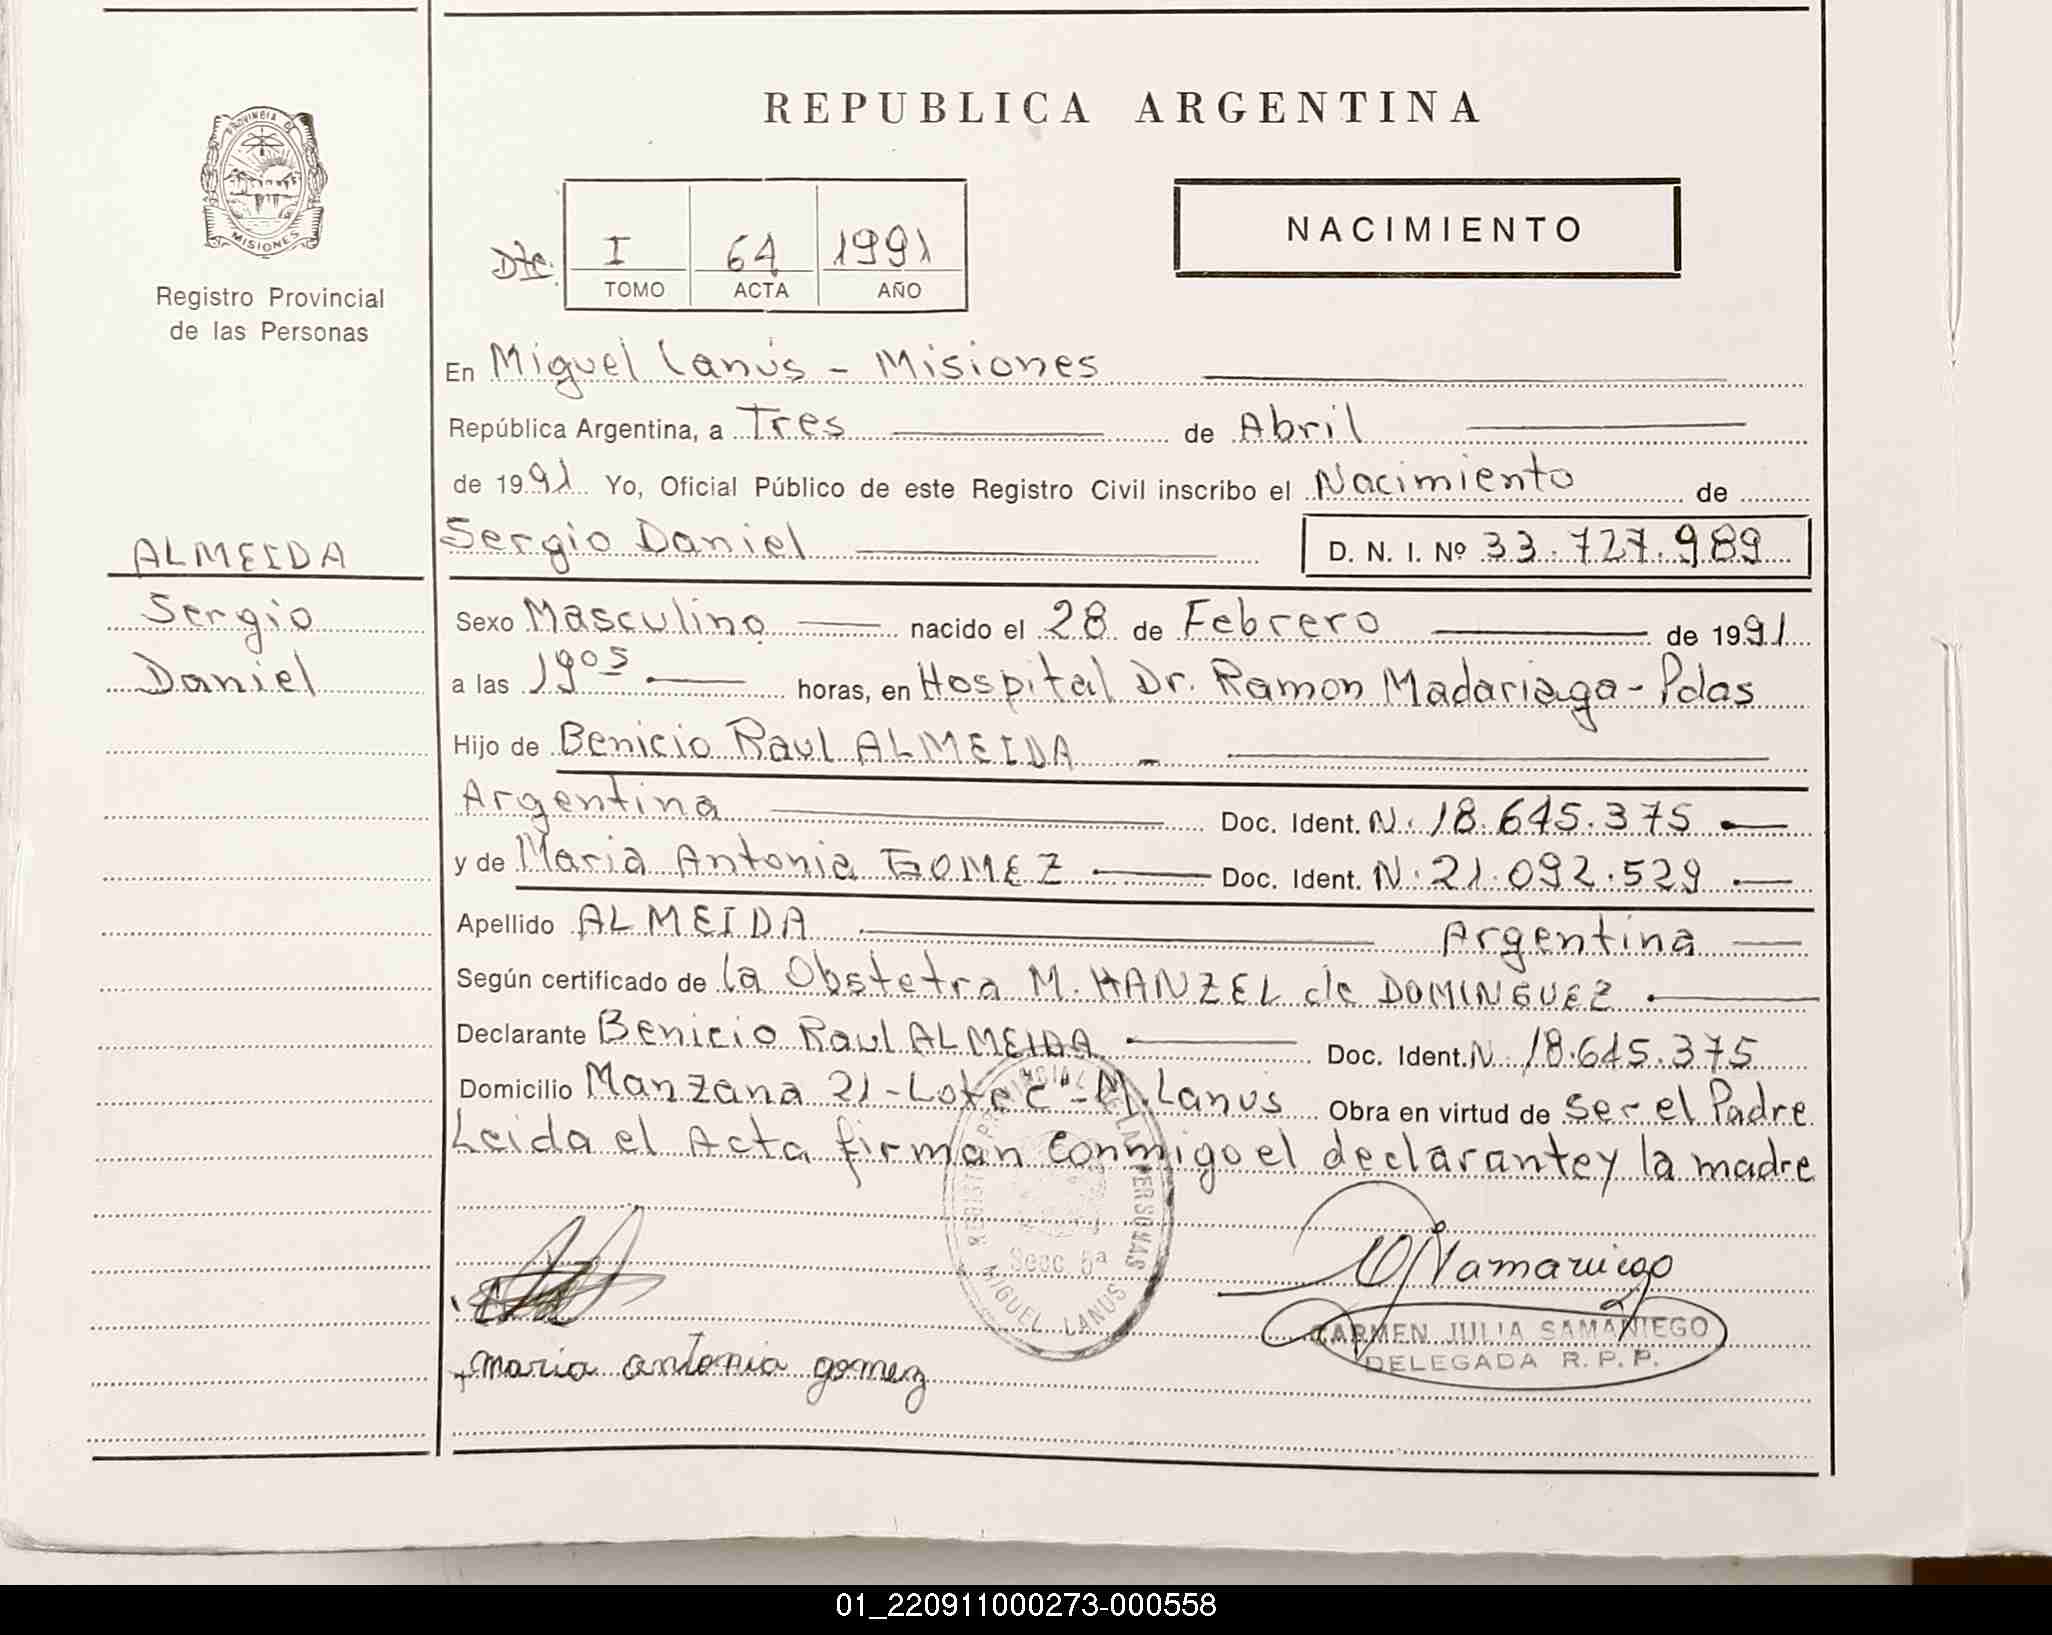 REPUBLICA ARGENTINA
PROVINCIA DE
MISIONES
Registro Provincial
de las Personas
NACIMIENTO
I 64 1991
TOMO ACTA AÑO
En Miguel Lanús - Misiones
República Argentina, a Tres de Abril
de 1991 Yo, Oficial Público de este Registro Civil inscribo el Nacimiento de
Sergio Daniel D. N. I. Nº 33.727.989
ALMEIDA
Sergio
Daniel
Sexo Masculino nacido el 28 de Febrero de 1991
a las 1905 horas, en Hospital Dr. Ramon Madariaga - Pdas
Hijo de Benicio Raul ALMEIDA -
Argentina Doc. Ident. N. 18.645.375
y de Maria Antonia GOMEZ Doc. Ident. N. 21.092.529
Apellido ALMEIDA Argentina
Según certificado de la Obstetra M. HANZEL de DOMINGUEZ
Declarante Benicio Raul ALMEIDA Doc. Ident. N. 18.645.375
Domicilio Manzana 21 - Lote "C" - M. Lanus Obra en virtud de ser el Padre
Leida el Acta firman conmigo el declarante y la madre
REGISTRO PROVINCIAL DE LAS PERSONAS
Secc. 5ª
MIGUEL LANUS
maria antonia gomez
CARMEN JULIA SAMANIEGO
DELEGADA R. P. P.
01_220911000273-000558